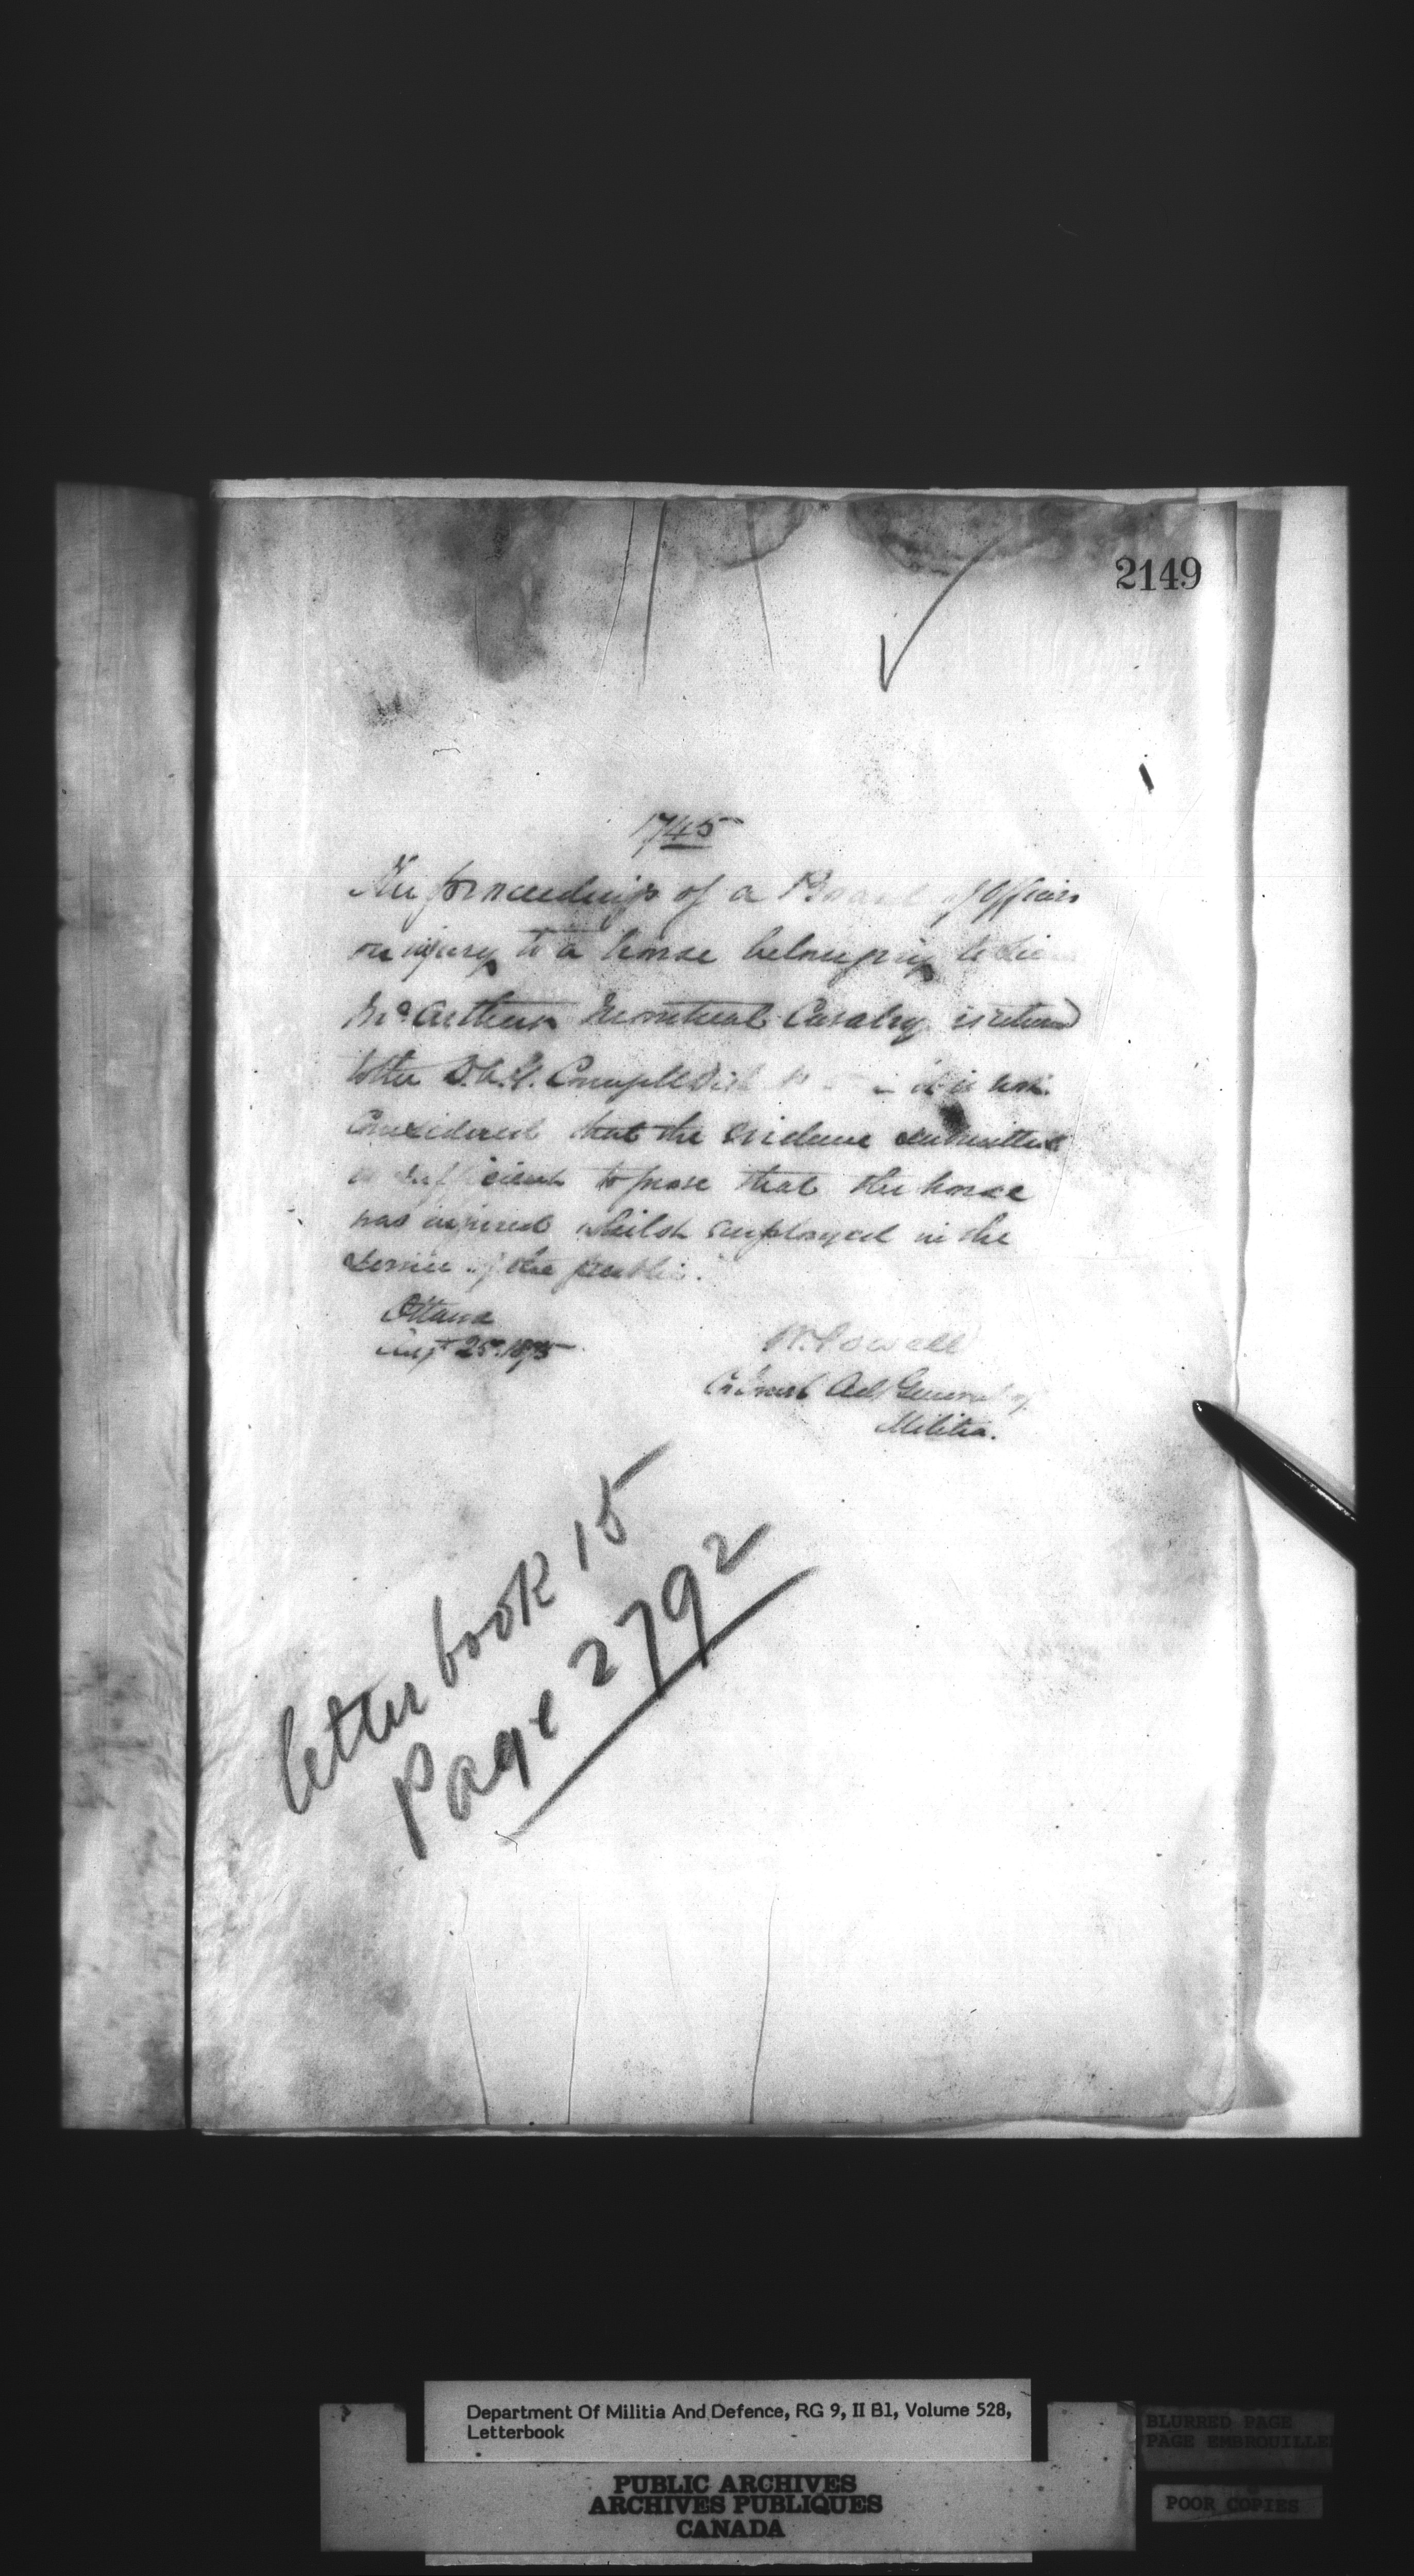 2149
1745
The proceedings of a Board of Officers
on injury to a horse belonging to
McArthur Montreal Cavalry is returned
to the D.A.G. it is not
Considered that the evidence submitted
is sufficient to prove that the horse
was injured whilst employed in the
service of the public.
Ottawa
Augt 25. 1875
W. Powell
Colonel Adj General of
Militia.
letter book 15
Page 2792
Department Of Militia And Defence, RG 9, II B1, Volume 528,
Letterbook
BLURRED PAGE
PAGE EMBROUILLE
PUBLIC ARCHIVES
ARCHIVES PUBLIQUES
CANADA
POOR COPIES